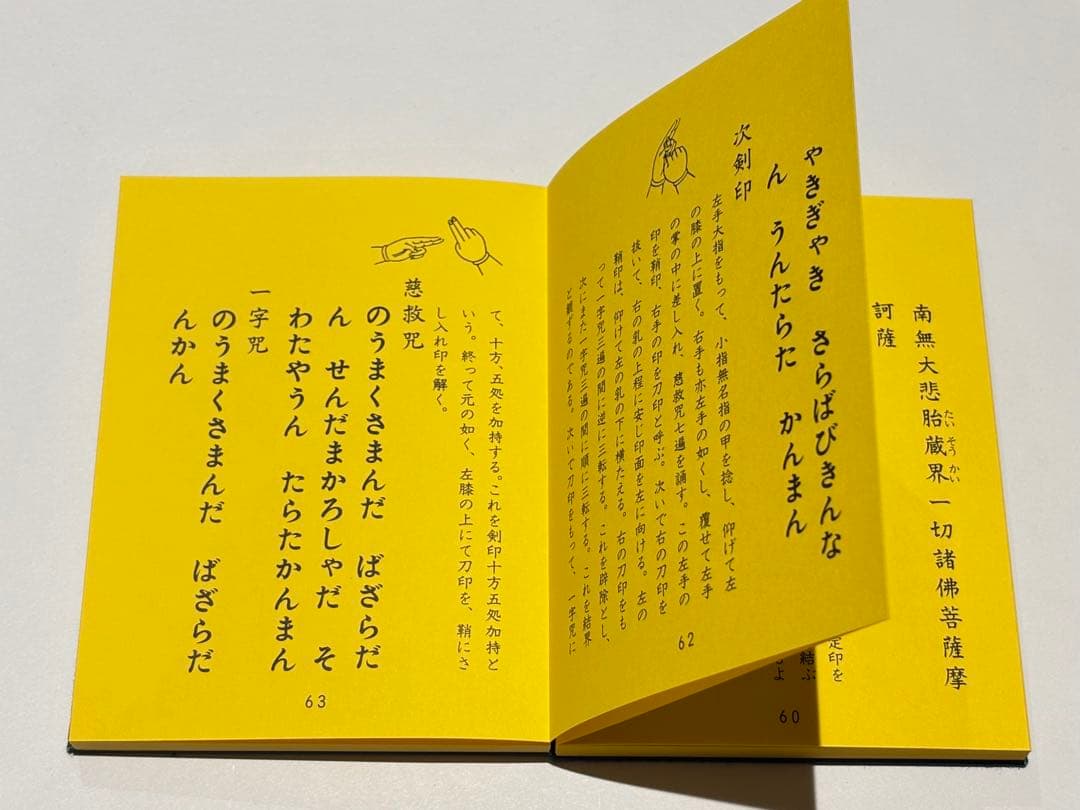 南無大悲胎蔵界一切諸佛菩薩摩
たい
ぞう
かい
訶薩
定印を
結ぶ
60
やきぎゃき さらばびきんな
ん うんたらた かんまん
次剣印
左手大指をもって、小指無名指の甲を捻し、仰げて左
の膝の上に置く。右手も亦左手の如くし、覆せて左手
の掌の中に差し入れ、慈救咒七遍を誦す。この左手の
印を鞘印、右手の印を刀印と呼ぶ。次いで右の刀印を
抜いて、右の乳の上程に安じ印面を左に向ける。左の
鞘印は、仰けて左の乳の下に横たえる。右の刀印をも
って一字咒三遍の間に逆に三転する。これを辟除とし、
次にまた一字咒三遍の間に順に三転する。これを結界
と観ずるのである。次いで刀印をもって、一字咒に
62
て、十方、五処を加持する。これを剣印十方五処加持と
いう。終って元の如く、左膝の上にて刀印を、鞘にさ
し入れ印を解く。
慈救咒
のうまくさまんだ ばざらだ
ん せんだまかろしゃだ そ
わたやうん たらたかんまん
一字咒
のうまくさまんだ ばざらだ
んかん
63